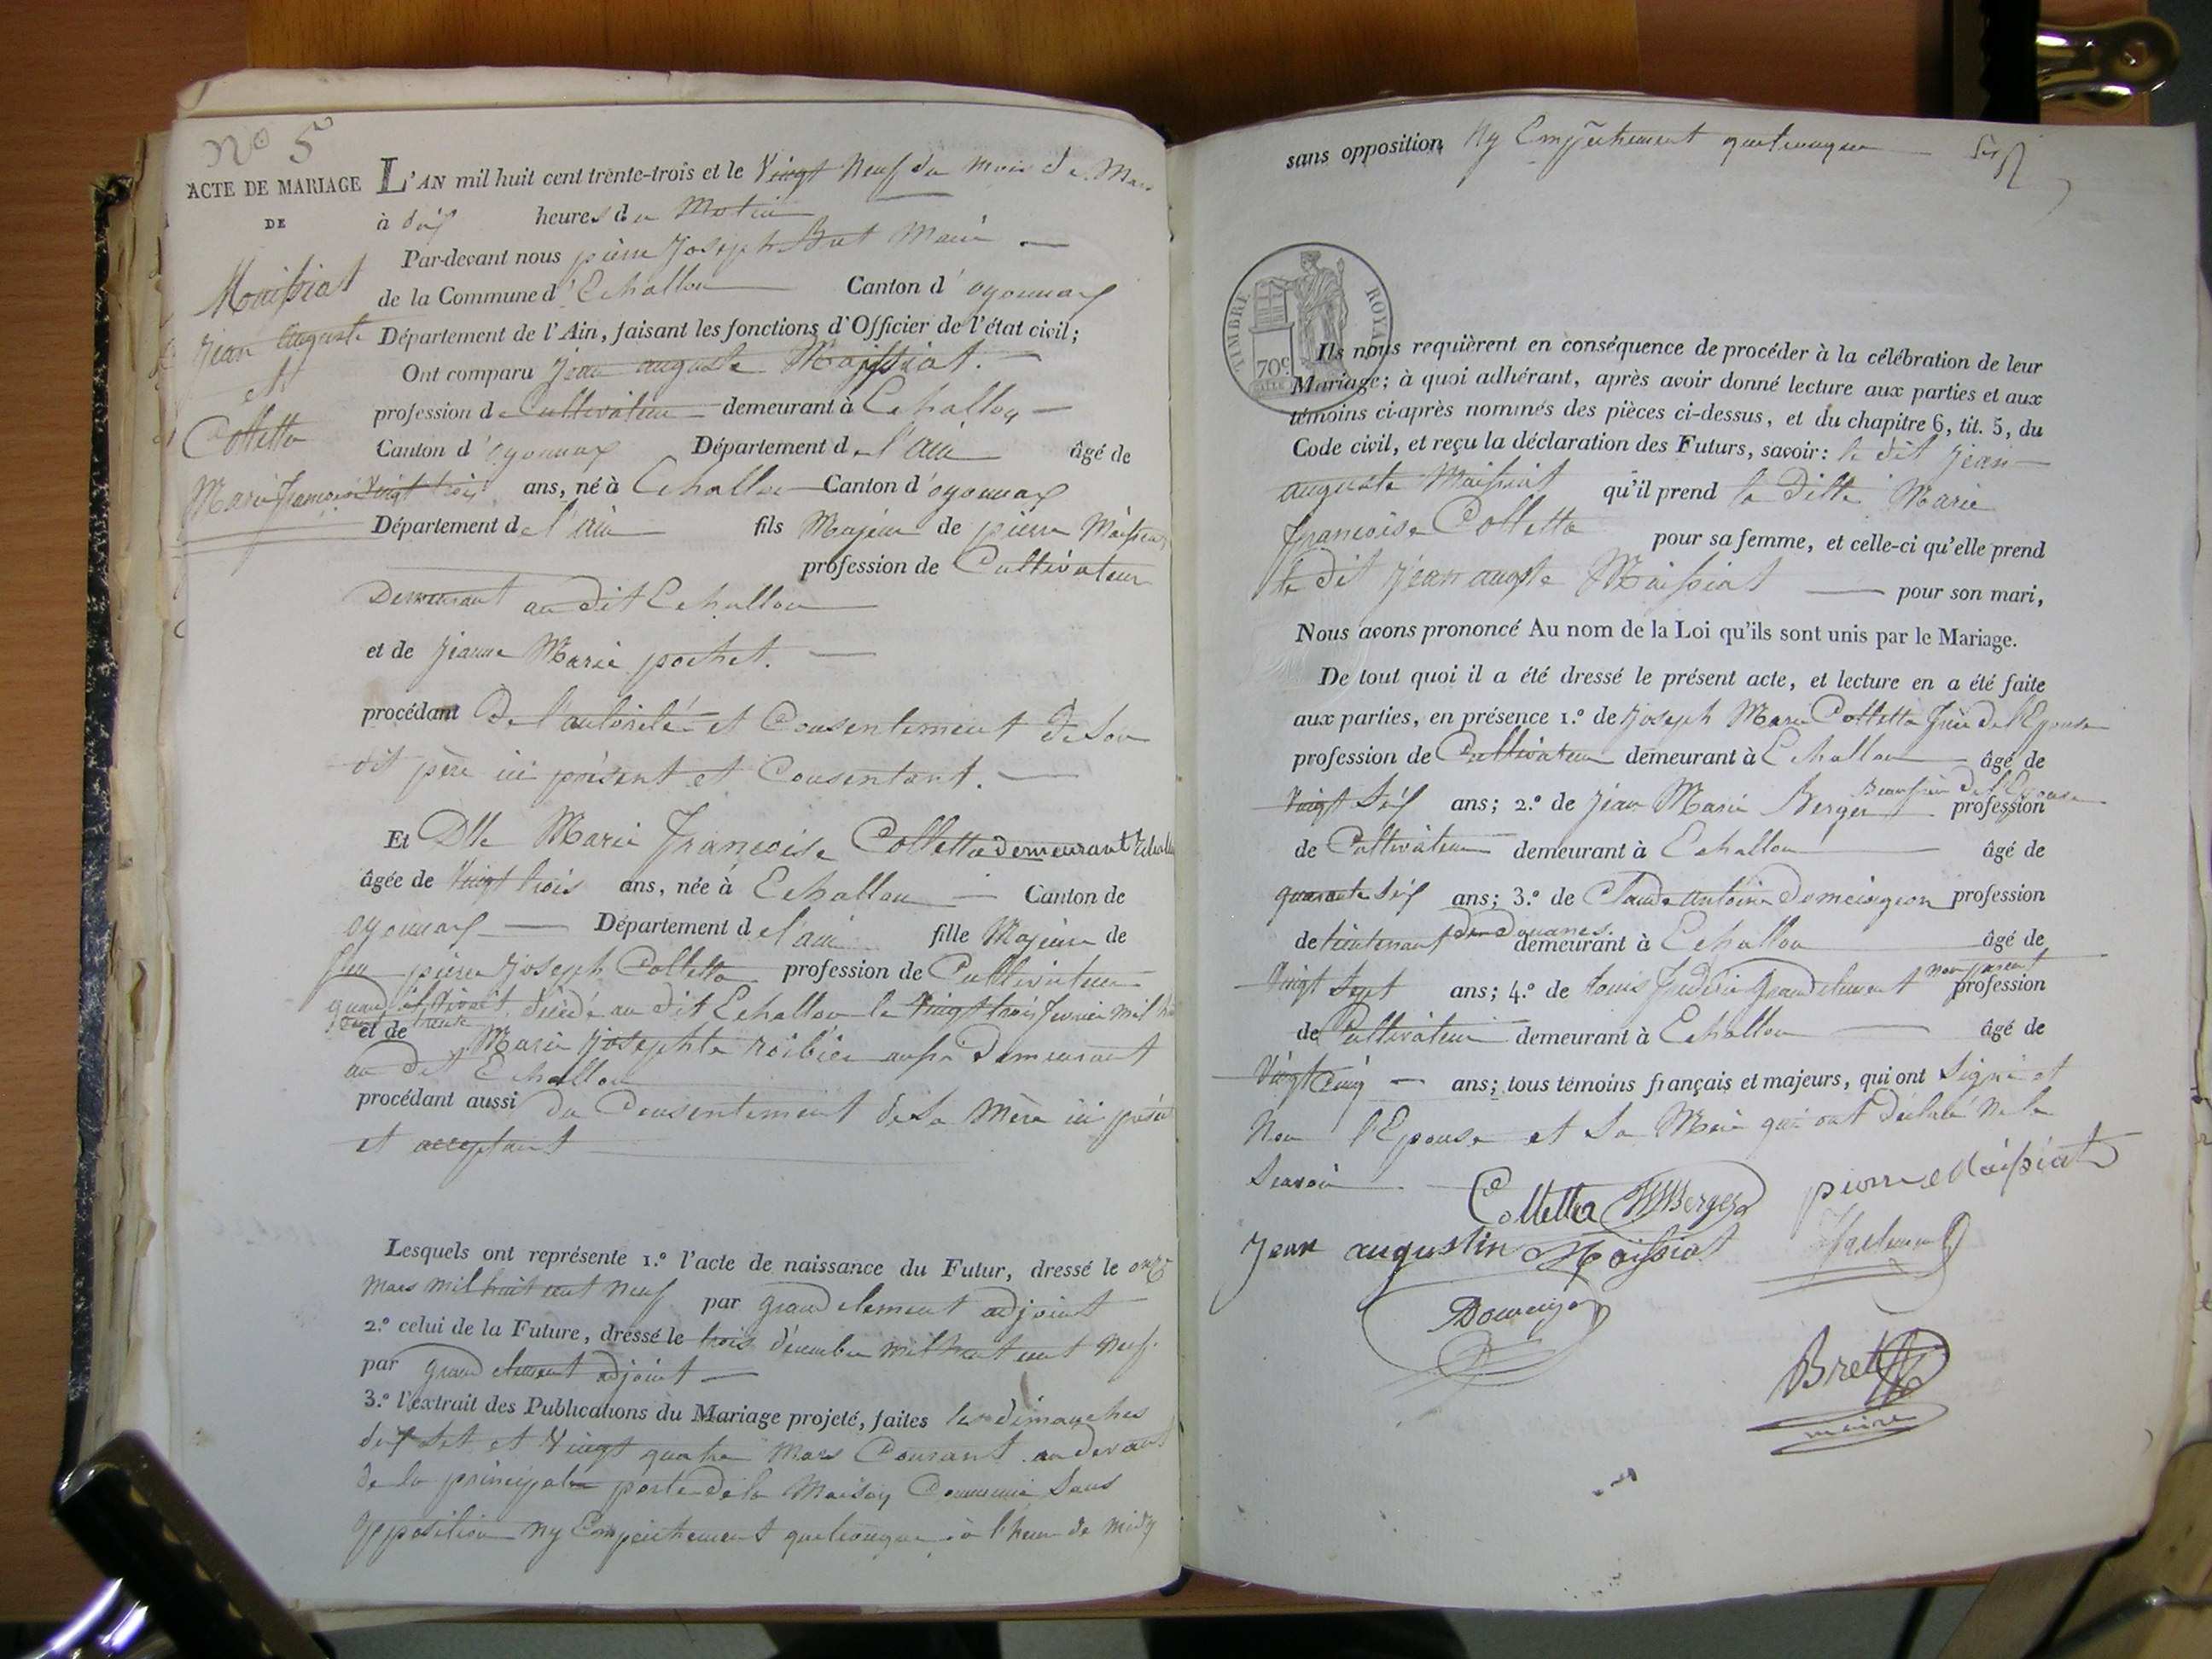 No 5
ACTE DE MARIAGE
DE
Maissiat
Jean Auguste
et
Colletta
Marie Françoise
L'AN mil huit cent trente-trois et le Vingt Neuf du mois de Mars
à dix heures du Matin
Par-devant nous pierre Joseph Bret Maire
de la Commune d'Echallon Canton d'oyonnax
Département de l'Ain, faisant les fonctions d'Officier de l'état civil;
Ont comparu Jean auguste Maissiat.
profession de Cultivateur demeurant à Echallon
Canton d'oyonnax Département de l'ain âgé de
Vingt trois ans, né à Echallon Canton d'oyonnax
Département de l'ain fils Majeur de pierre Maissiat
profession de Cultivateur
Demeurant au dit Echallon
et de Jeanne Marie pochet.
procédant De l'autorité et Consentement de Son
dit père ici présent et Consentant.
Et Dlle Marie Françoise Colletta demeurant
âgée de Vingt trois ans, née à Echallon Canton de
oyonnax Département de l'ain fille Majeure de
feu pierre Joseph Colletta profession de Cultivateur
quand il vivait, décédé au dit Echallon le Vingt trois fevrier mil
cent trente
et de Marie Josephte roibier aussi Demeurant
au dit Echallon
procédant aussi du Consentement de Sa Mère ici
et acceptant
Lesquels ont représente 1.º l'acte de naissance du Futur, dressé le onze
Mars mil huit cent neuf par grand clement adjoint
2.º celui de la Future, dressé le trois décembre mil huit cent neuf.
par grand clement adjoint
3.º l'extrait des Publications du Mariage projeté, faites les dimanches
dix Set et Vingt quatre Mars Courant au devant
de la principale porte de la Maison Commune Sans
opposition ny Empeichement quelconque à l'heure de midy
sans opposition Ny Empeichement quelconque
TIMBRE ROYAL
70c
Ils nous requièrent en conséquence de procéder à la célébration de leur
Mariage; à quoi adhérant, après avoir donné lecture aux parties et aux
témoins ci-après nommés des pièces ci-dessus, et du chapitre 6, tit. 5, du
Code civil, et reçu la déclaration des Futurs, savoir: le dit Jean
auguste Maissiat qu'il prend la Ditte Marie
françoise Colletta pour sa femme, et celle-ci qu'elle prend
le dit Jean augste Maissiat pour son mari,
Nous avons prononcé Au nom de la Loi qu'ils sont unis par le Mariage.
De tout quoi il a été dressé le présent acte, et lecture en a été faite
aux parties, en présence 1.º de Joseph Marie Colletta frère de l'Epouse
profession de Cultivateur demeurant à Echallon âgé de
Beaufrère de l'Epouse
Vingt Six ans; 2.º de Jean Marie Berger profession
de Cultivateur demeurant à Echallon âgé de
quarante Six ans; 3.º de Claude antoine profession
de lieutenant des Douanes. demeurant à Echallon âgé de
non parent
Vingt Sept ans; 4.º de Louis grand clement profession
de Cultivateur demeurant à Echallon âgé de
Vingt Cinq ans; tous témoins français et majeurs, qui ont Signé et
Non l'Epouse et Sa Mère qui ont déclaré ne le
Scavoir
Colletta JMBerger pierre Maissiat
Jean augustin Maissiat
Bret
maire